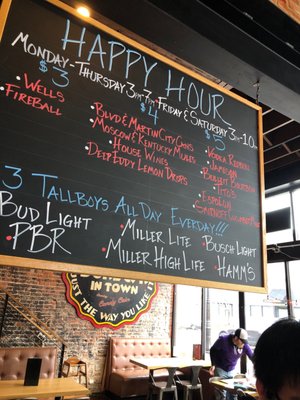 HAPPY HOUR
MONDAY-THURSDAY 3PM-7PM FRIDAY & SATURDAY 3PM-10PM
$3
• WELLS
• FIREBALL
$4
• BLVD & MARTIN CITY CANS
• MOSCOW & KENTUCKY MULES
• HOUSE WINES
• DEEP EDDY LEMON DROPS
$5
• VODKA REDBULL
• JAMESON
• BULLEIT BOURBON
• TITO'S
• ESPOLON
3 TALLBOYS ALL DAY EVERYDAY!!!
• BUD LIGHT
• PBR
• MILLER LITE
• BUSCH LIGHT
• MILLER HIGH LIFE
• HAMM'S
IN TOWN
JUST THE WAY YOU LIKE